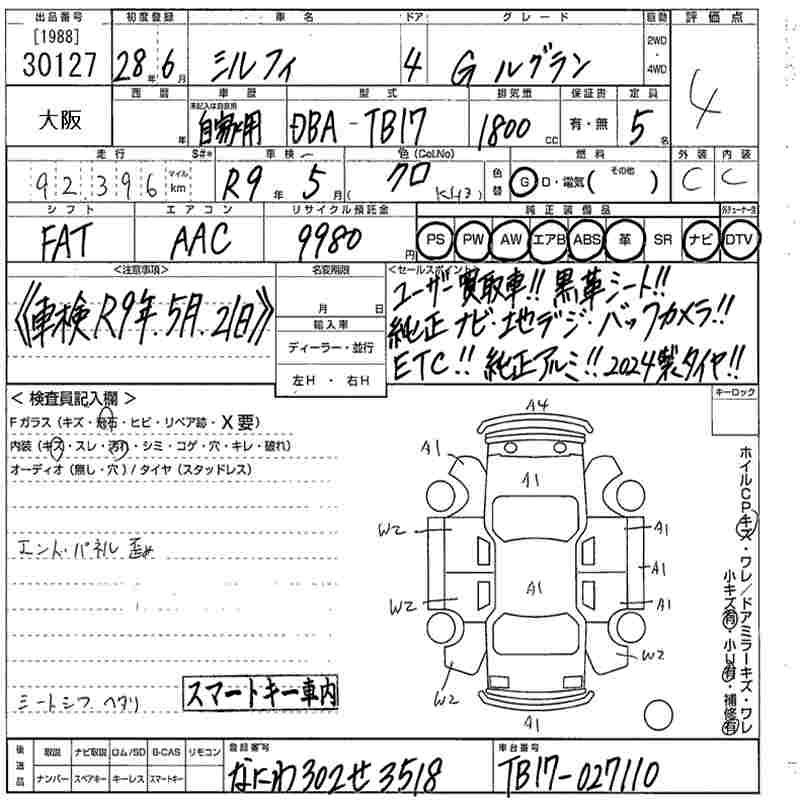 出品番号 初度登録 車名 ドア グレード 駆動 評価点
[1988]
30127 28年6月 シルフィ 4 G ルグラン 2WD・4WD 4
大阪
西暦 車歴 型式 排気量 保証書 定員
未記入は自家用
年 自家用 DBA-TB17 1800cc 有・無 5名
走行 S#* 車検 色(Col.No) 燃料 外装 内装
92,396 マイル km R9年5月 クロ(KH3) 色替 G D・電気( その他 ) C C
シフト エアコン リサイクル預託金 純正装備品
FAT AAC 9980円 PS PW AW エアB ABS 革 SR ナビ DTV
<注意事項> 名変期限 <セールスポイント>
《車検R9年.5月.21日》
月 日
輸入車
ディーラー・並行
左H・右H
ユーザー買取車!! 黒革シート!!
純正ナビ・地デジ・バックカメラ!!
ETC!! 純正アルミ!! 2024製タイヤ!!
キーロック
<検査員記入欄>
Fガラス(キズ・飛石・ヒビ・リペア跡・X要)
内装(キズ・スレ・汚れ・シミ・コゲ・穴・キレ・破れ)
オーディオ(無し・穴)/タイヤ(スタッドレス)
エンド・パネル 歪め
シートシワ ヘタリ
スマートキー車内
A4
A1
A1
W2
A1
A1
A1
W2
A1
W2
W2
A1
ホイルCPキズ・ワレ/ドアミラーキズ・ワレ
小キズ有・小U有・補修有
後送品 取説 ナビ取説 ロム/SD B-CAS リモコン
ナンバー スペアキー キーレス スマートキー
登録番号 車台番号
なにわ302せ3518 TB17-027110